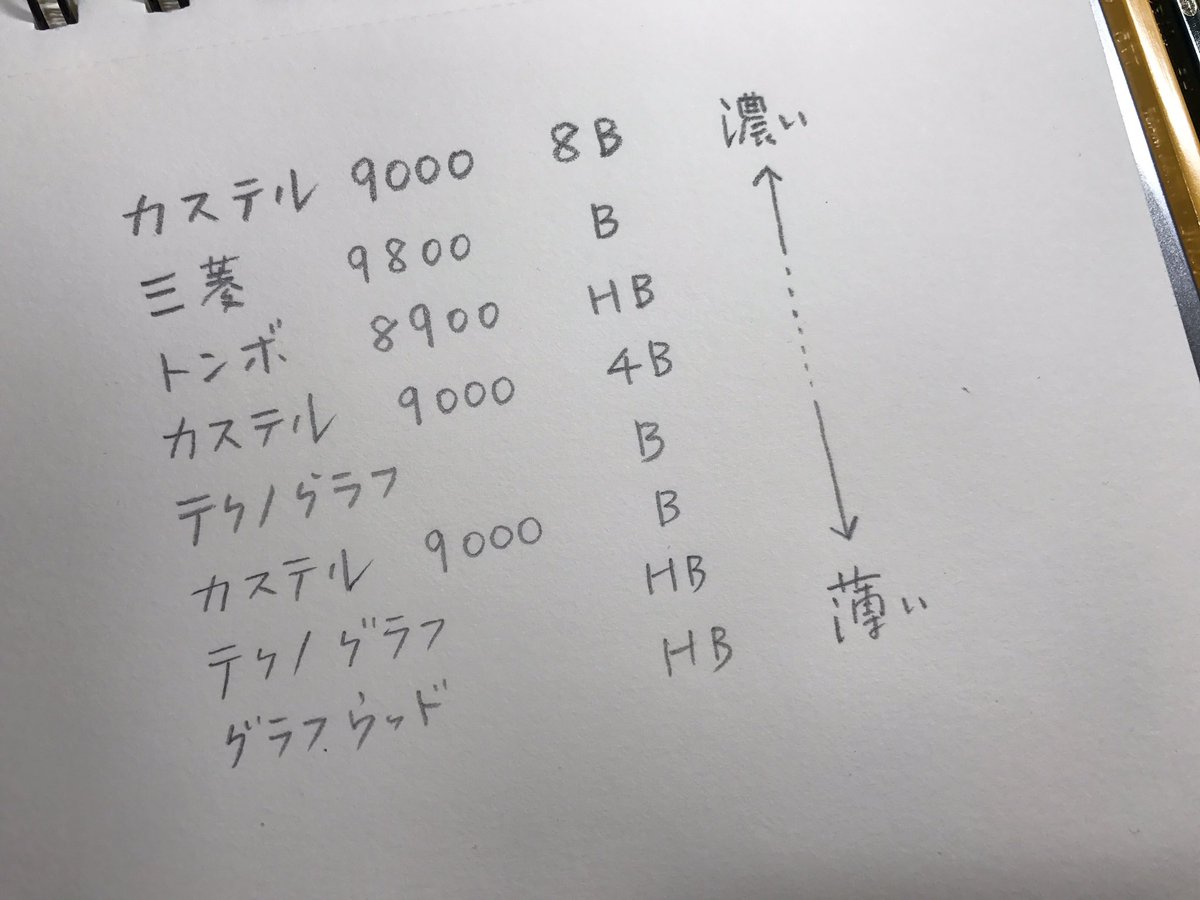 カステル 9000 8B 濃い
三菱 9800 B
トンボ 8900 HB
カステル 9000 4B
テクノグラフ B
カステル 9000 B
テクノグラフ HB 薄い
グラフウッド HB